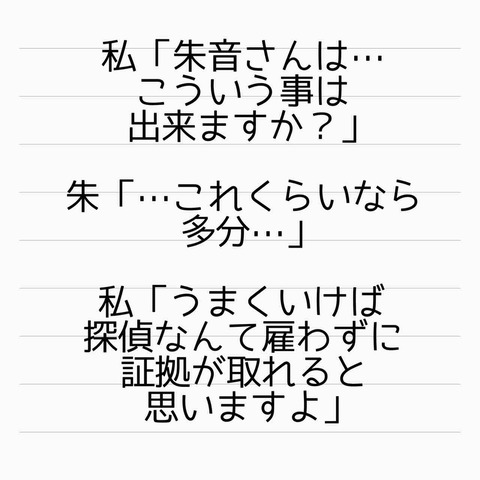 私「朱音さんは…
こういう事は
出来ますか？」
朱「…これくらいなら
多分…」
私「うまくいけば
探偵なんて雇わずに
証拠が取れると
思いますよ」